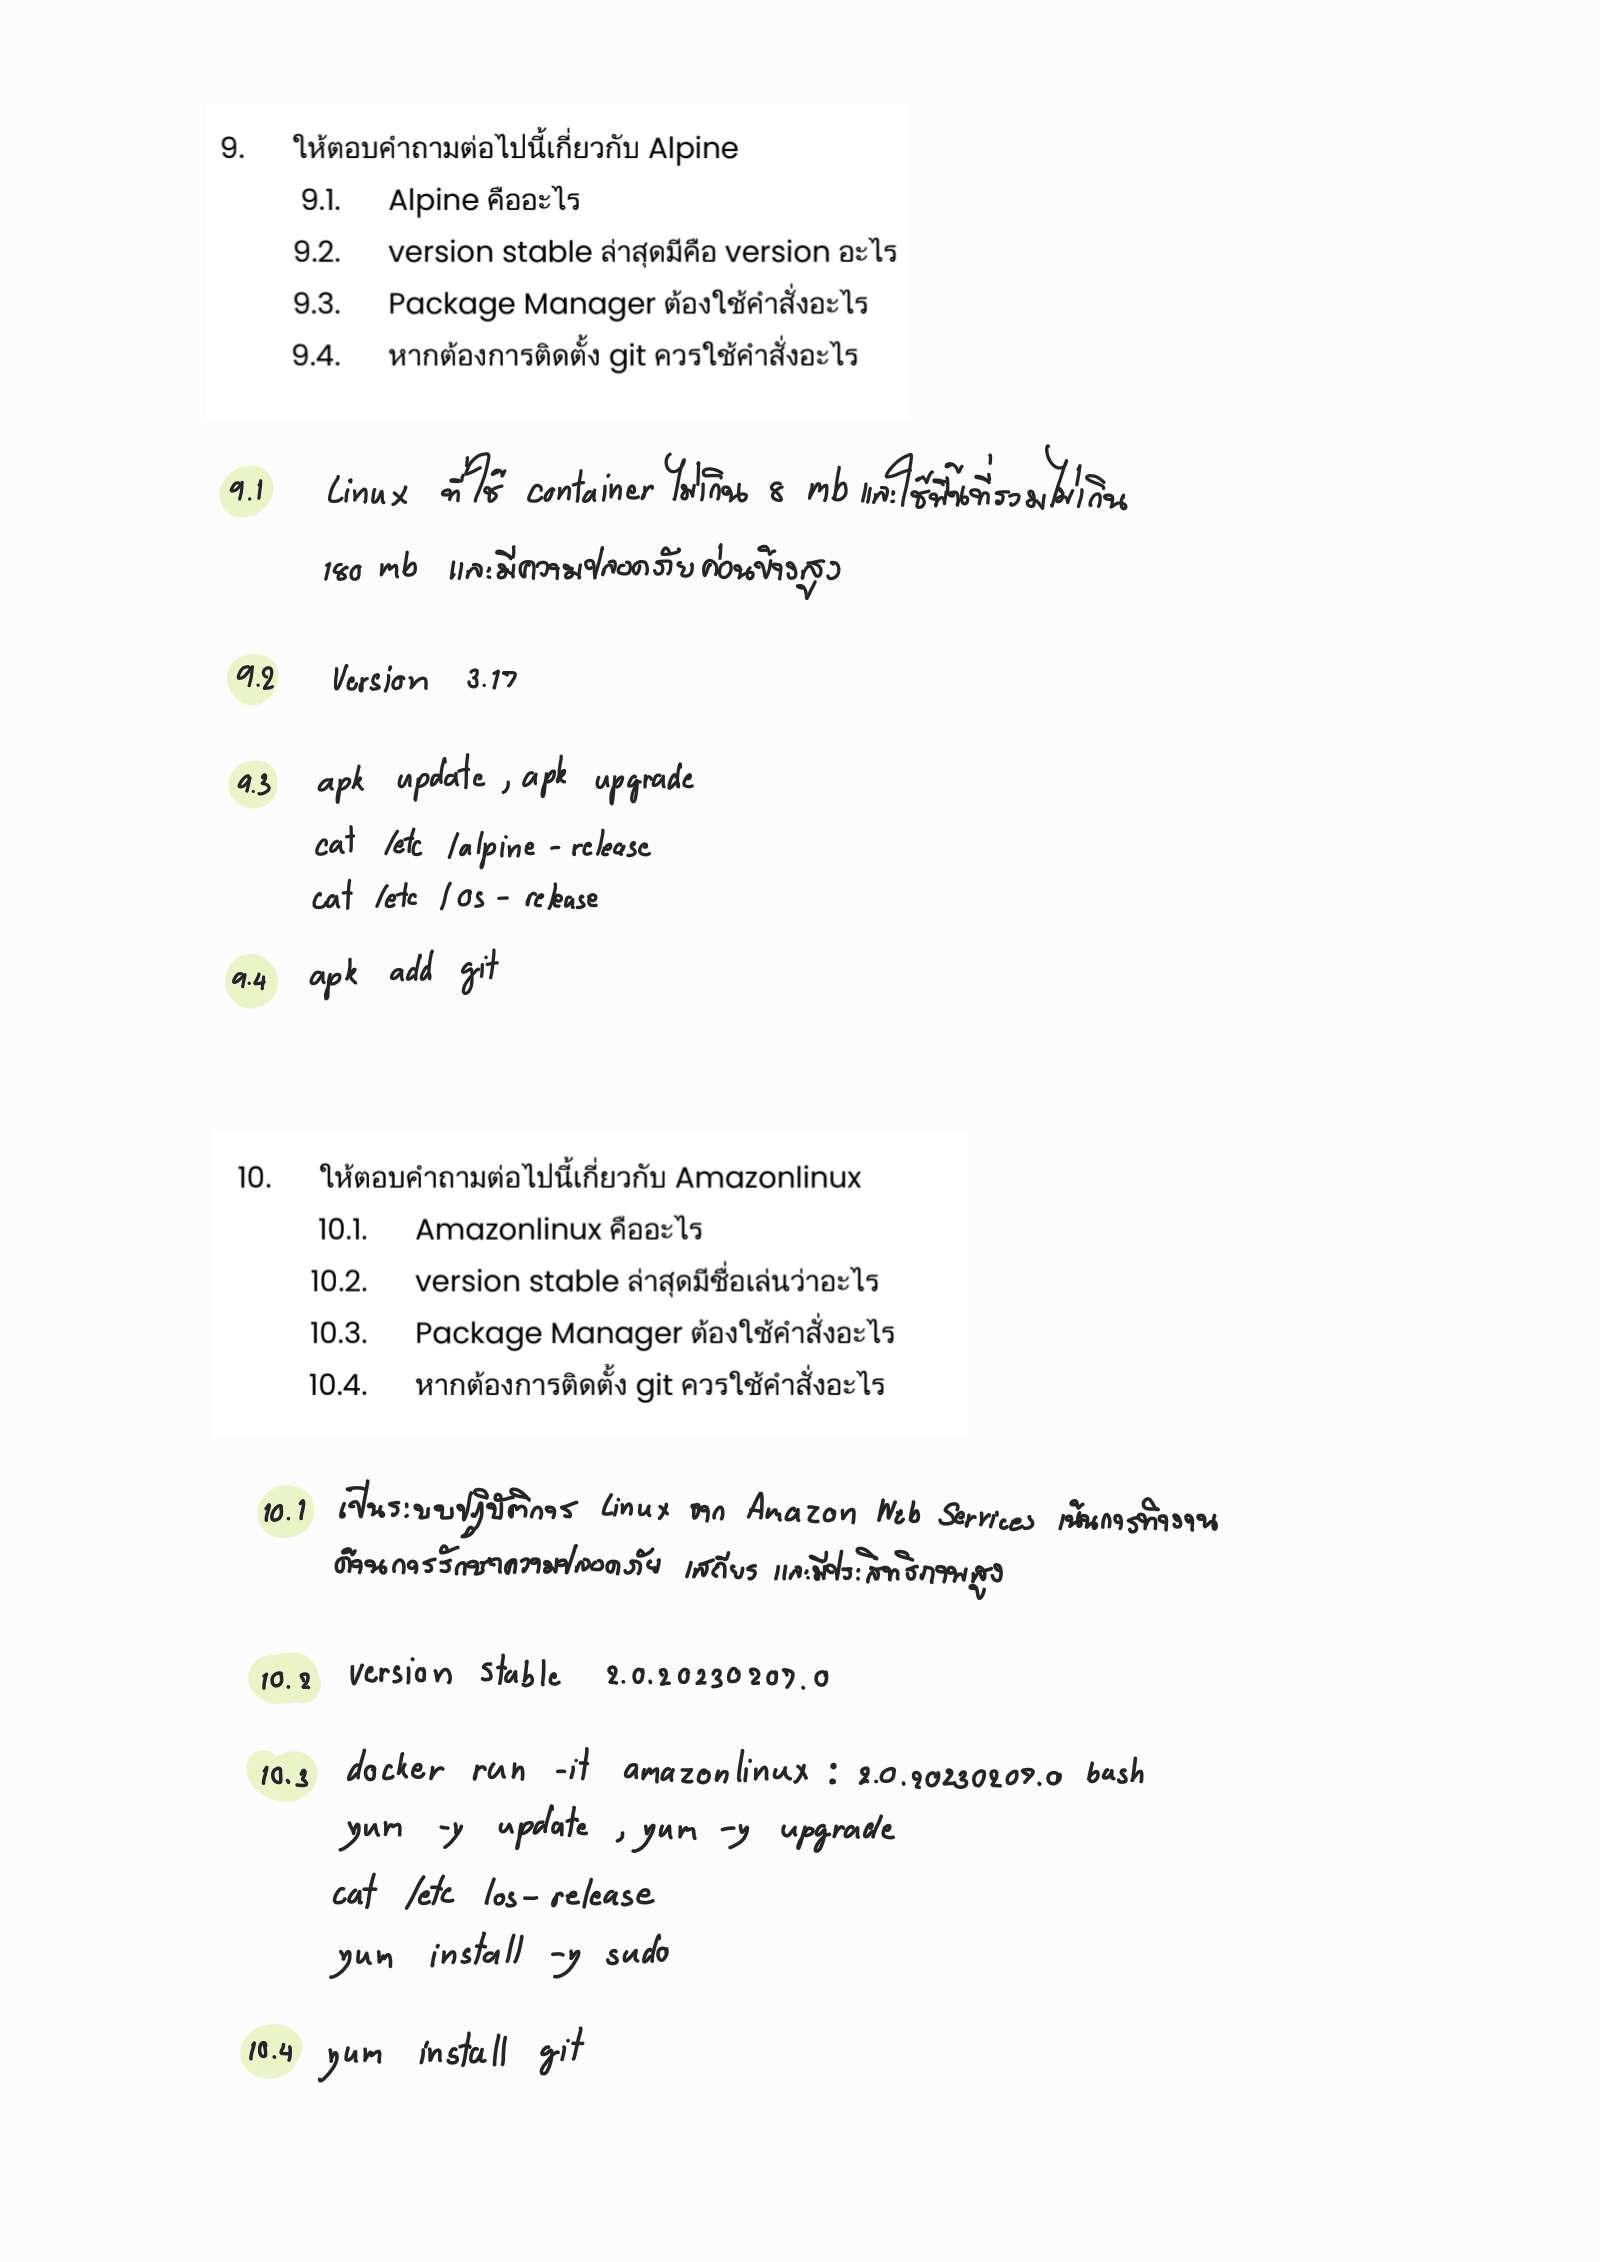 9. ให้ตอบคำถามต่อไปนี้เกี่ยวกับ Alpine
9.1. Alpine คืออะไร
9.2. version stable ล่าสุดมีคือ version อะไร
9.3. Package Manager ต้องใช้คำสั่งอะไร
9.4. หากต้องการติดตั้ง git ควรใช้คำสั่งอะไร
9.1 Linux ที่ใช้ container ไม่เกิน 8 mb และใช้พื้นที่รวมไม่เกิน
180 mb และมีความปลอดภัยค่อนข้างสูง
9.2 Version 3.17
9.3 apk update , apk upgrade
cat /etc /alpine - release
cat /etc / os - release
9.4 apk add git
10. ให้ตอบคำถามต่อไปนี้เกี่ยวกับ Amazonlinux
10.1. Amazonlinux คืออะไร
10.2. version stable ล่าสุดมีชื่อเล่นว่าอะไร
10.3. Package Manager ต้องใช้คำสั่งอะไร
10.4. หากต้องการติดตั้ง git ควรใช้คำสั่งอะไร
10.1 เป็นระบบปฏิบัติการ Linux จาก Amazon Web Services เน้นการทำงาน
ด้านการรักษาความปลอดภัย เสถียร และมีประสิทธิภาพสูง
10.2 version stable 2.0.20230207.0
10.3 docker run -it amazonlinux : 2.0.20230207.0 bash
yum -y update , yum -y upgrade
cat /etc /os - release
yum install -y sudo
10.4 yum install git